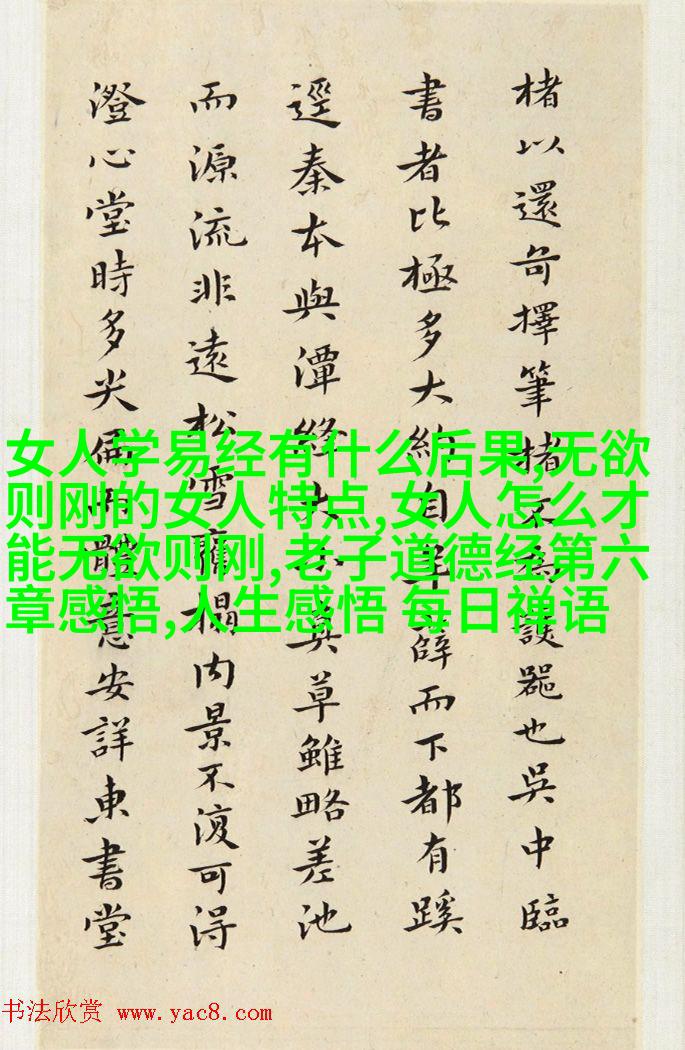 楮以還奇擇筆
也吳中臨
書者比極多大約自
而下都有蹊
逕秦本與潭絳
真草雖略差池
而源流非遠松雪
内景不復可得
澄心堂時多尖
安詳東書堂
女人学易经有什么后果,无欲
则刚的女人特点,女人怎么才
能无欲则刚,老子道德经第六
章感悟,人生感悟 每日禅语
书法欣赏 www.yac8.com